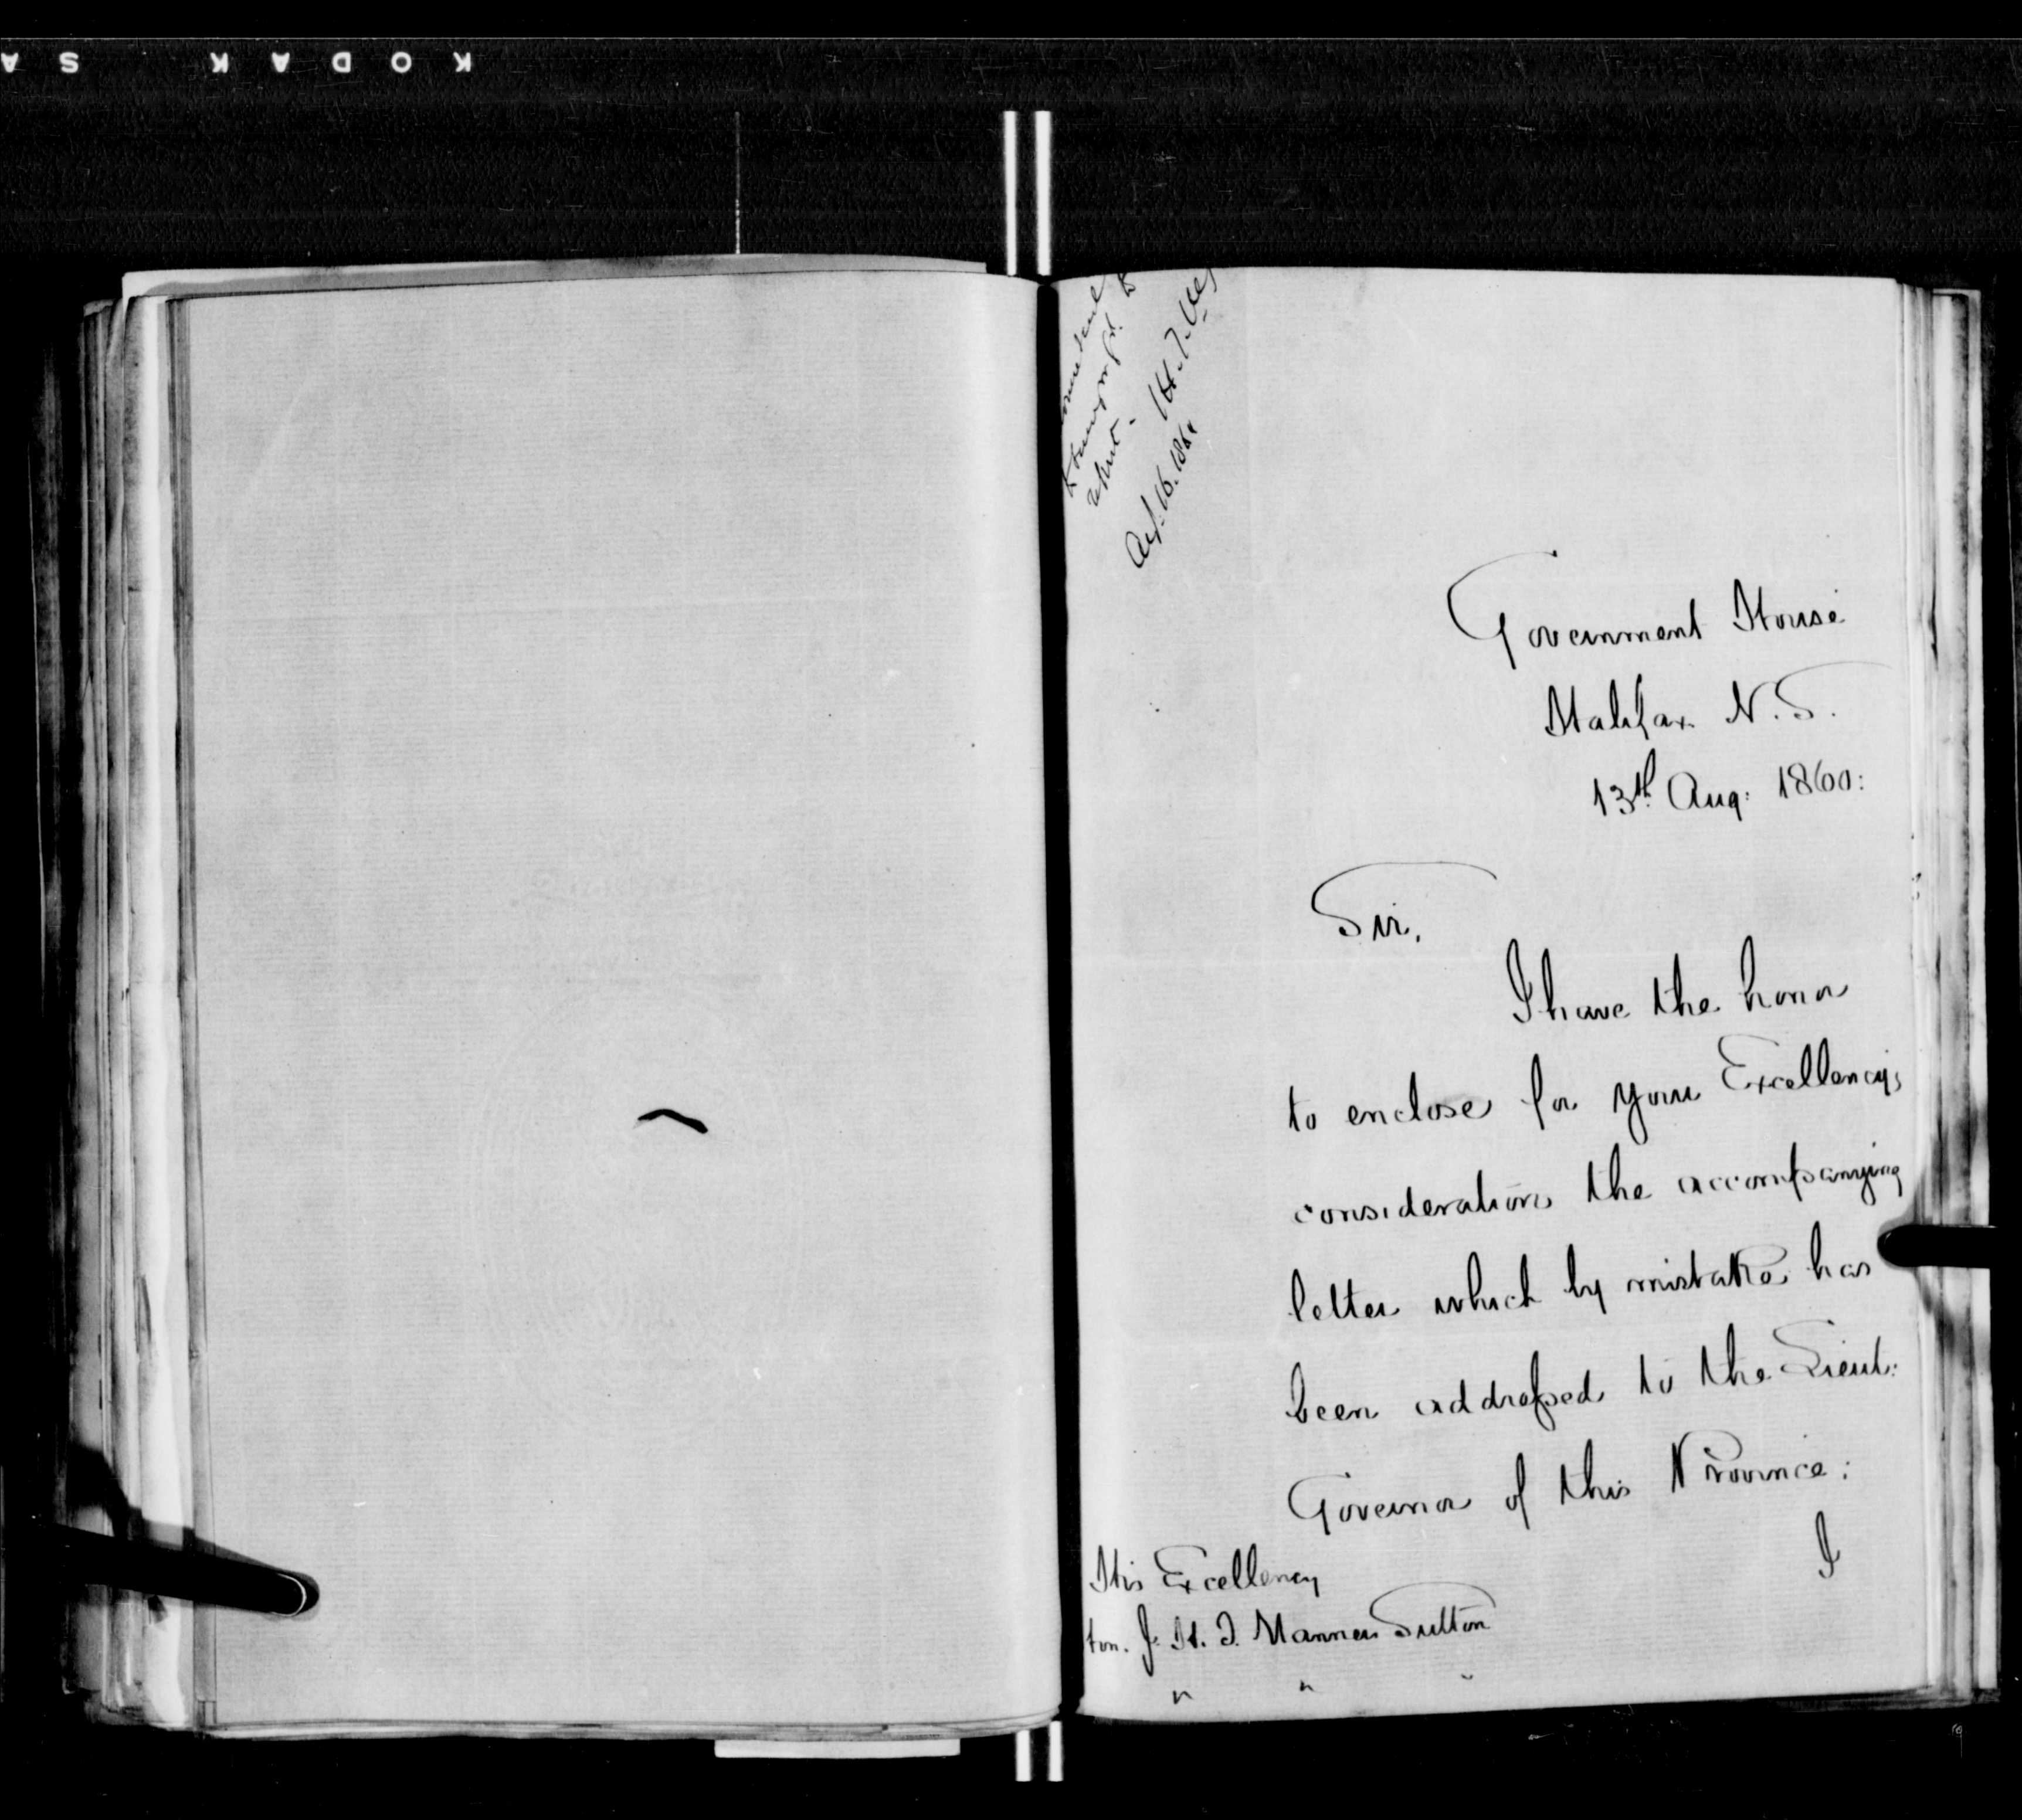 KODAK SA
Aug. 16. 1860
Government House
Halifax N.S.
13th Aug: 1860:
Sir,
I have the honor
to enclose for your Excellency's
consideration the accompanying
letter which by mistake has
been addressed to the Lieut:
Governor of this Province:
I
His Excellency
Hon. J. H. T. Manners Sutton
" " "